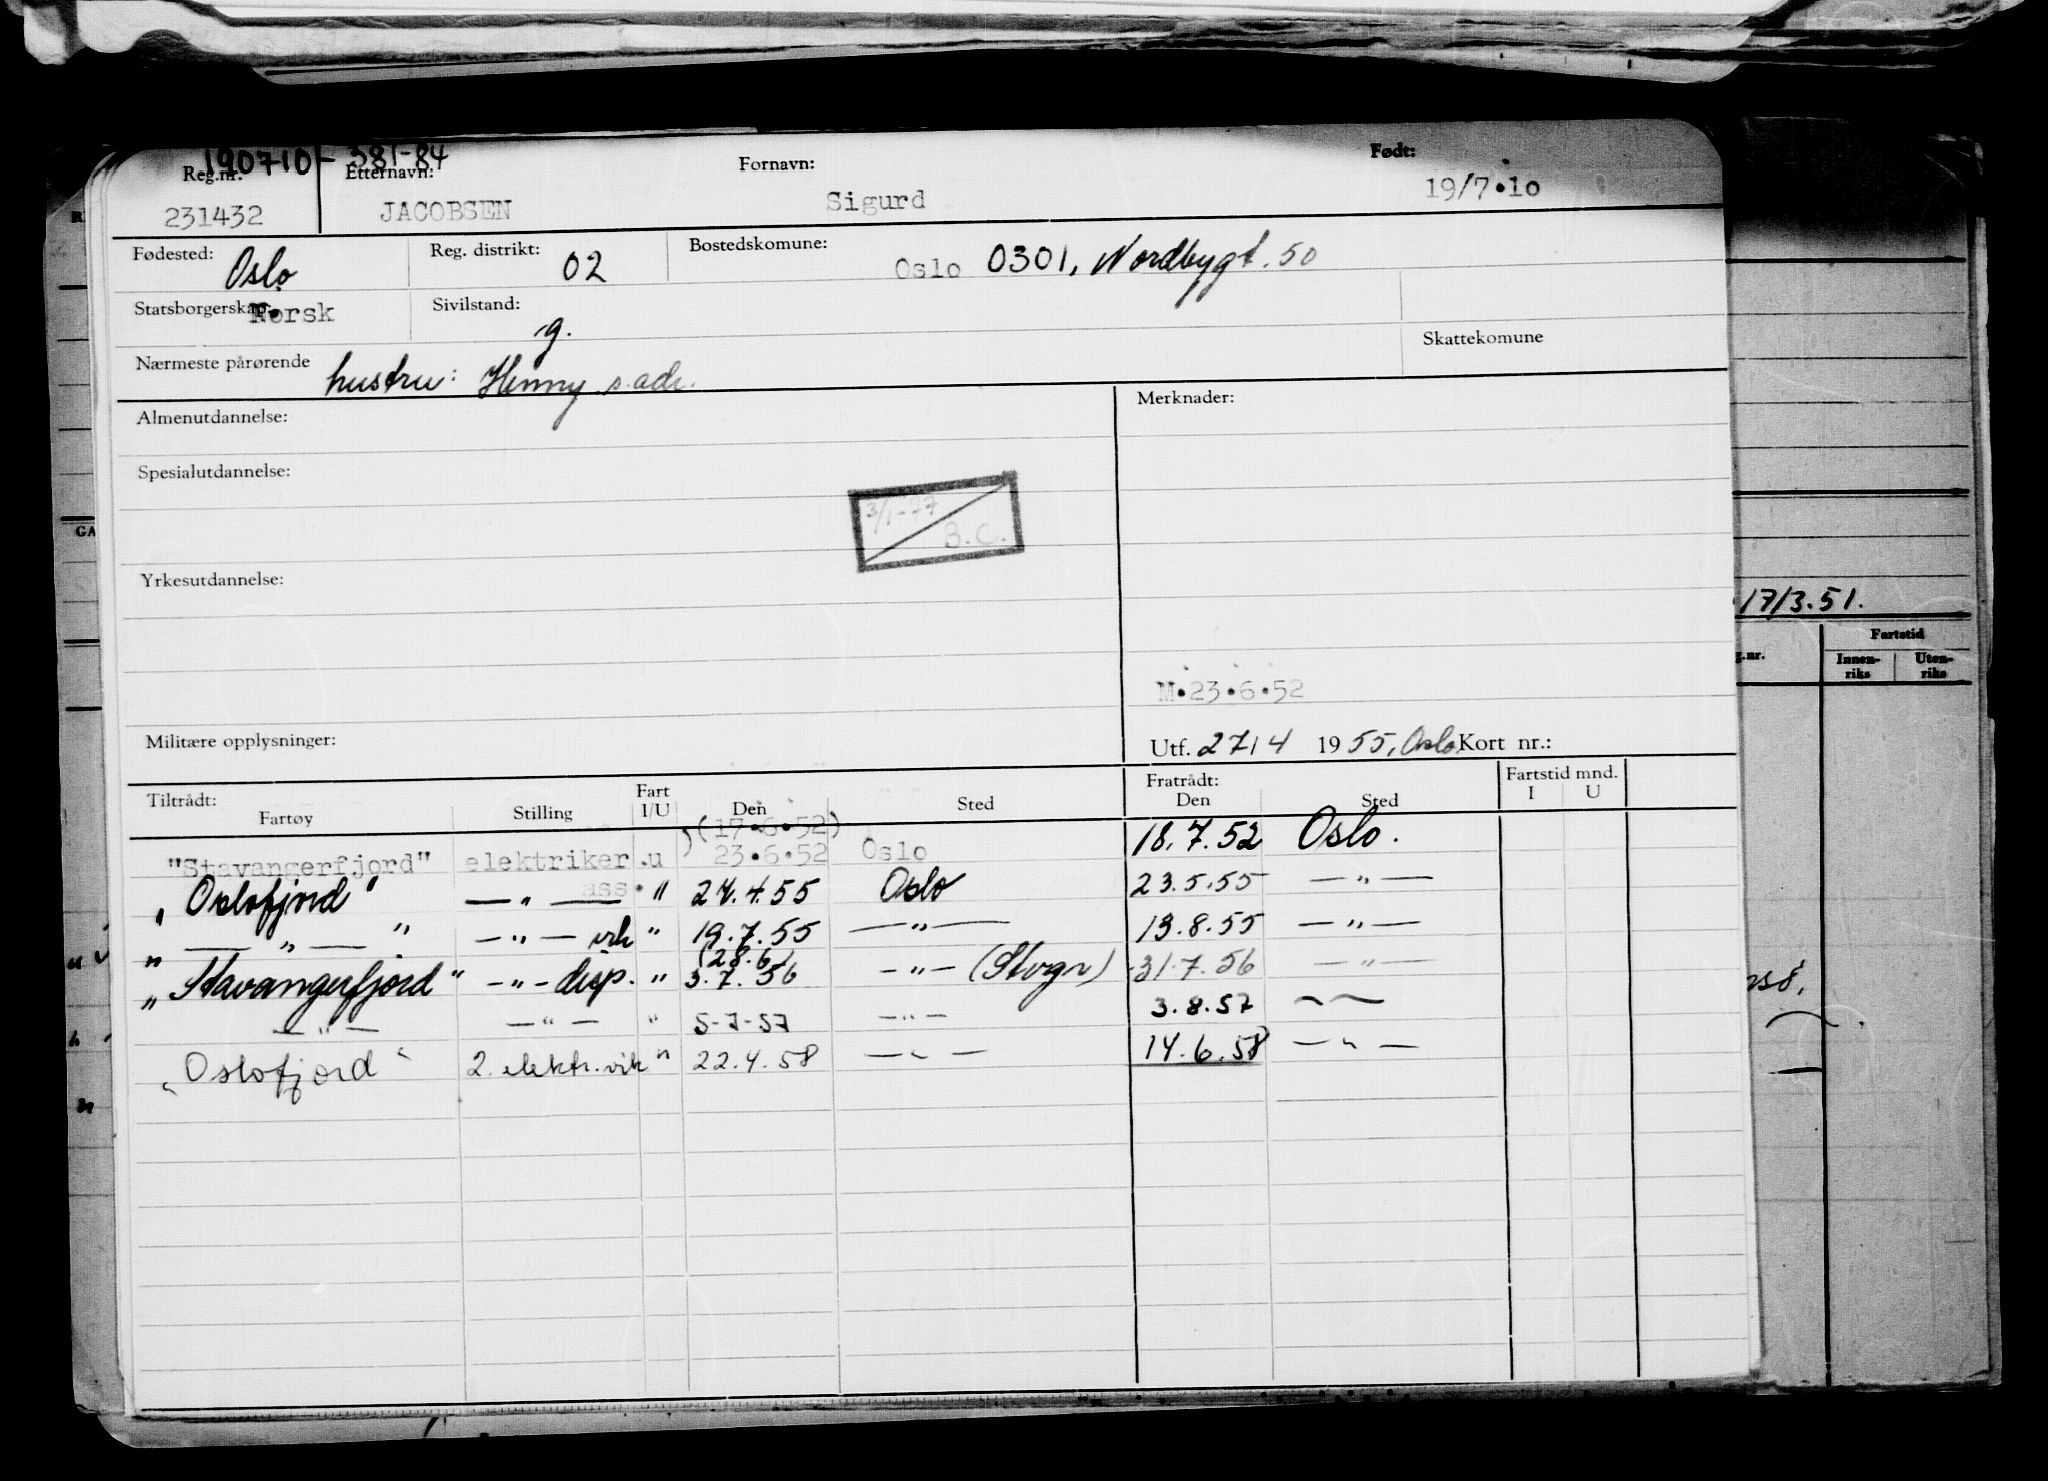 190710 - 381-84
Reg.nr. Etternavn: Fornavn: Født:
231432 JACOBSEN Sigurd 19/7.10
Fødested: Oslo Reg. distrikt: 02 Bostedskomune: Oslo 0301, Nordbygt. 50
Statsborgerskap: Norsk Sivilstand: g.
Nærmeste pårørende hustru: Henny s. adr. Skattekomune
Almenutdannelse: Merknader:
Spesialutdannelse:
3/1-77
B.C.
Yrkesutdannelse:
17/3.51.
Fartstid
g.nr. Innen-riks Uten-riks
M.23.6.52
Militære opplysninger: Utf. 27/4 1955, Oslo Kort nr.:
Tiltrådt: Fratrådt: Fartstid mnd.
Fartøy Stilling Fart I/U Den Sted Den Sted I U
(17.6.52)
"Stavangerfjord" elektriker .u 23.6.52 Oslo 18.7.52 Oslo.
ass.
"Oslofjord" — " — " 27.4.55 Oslo 23.5.55 — " —
" — " — " — " — " 19.7.55 — " — 13.8.55 — " —
(28.6)
"Stavangerfjord" — " — disp. " 3.7.56 — " — (Stvgr) 31.7.56 — " —
— " — — " — " 5-7-57 — " — 3.8.57 — " —
"Oslofjord" 2. elektr. vik " 22.4.58 — " — 14.6.58 — " —